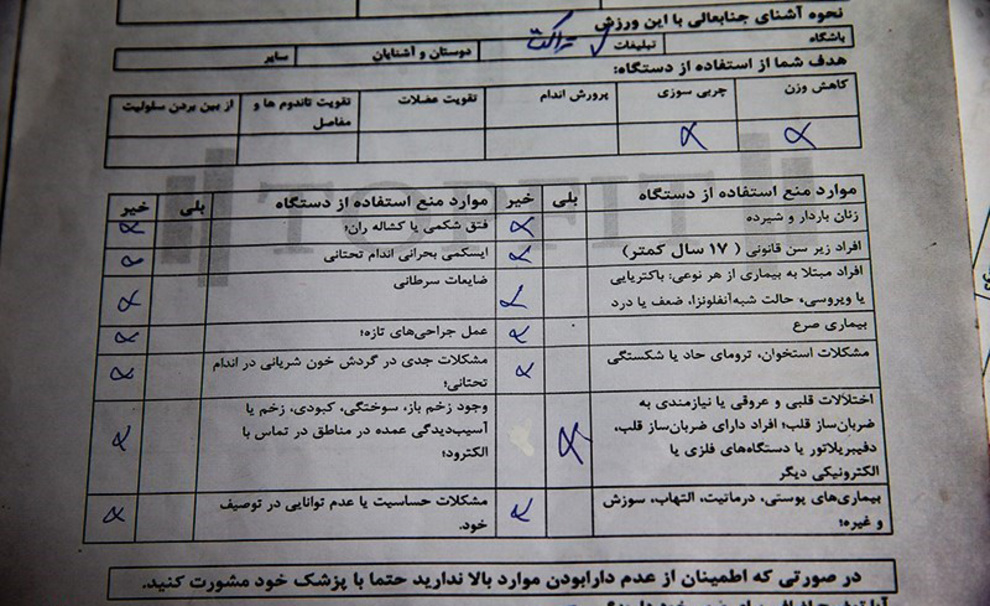 نحوه آشنای جنابعالی با این ورزش
باشگاه تبلیغات تراکت دوستان و آشنایان سایر
هدف شما از استفاده از دستگاه:
کاهش وزن چربی سوزی پرورش اندام تقویت عضلات تقویت تاندوم ها و مفاصل از بین بردن سلولیت
TOPFIT
موارد منع استفاده از دستگاه بلی خیر موارد منع استفاده از دستگاه بلی خیر
زنان باردار و شیرده
فتق شکمی یا کشاله ران؛
افراد زیر سن قانونی ( ۱۷ سال کمتر)
ایسکمی بحرانی اندام تحتانی
افراد مبتلا به بیماری از هر نوعی: باکتریایی
یا ویروسی، حالت شبه‌آنفلونزا، ضعف یا درد
ضایعات سرطانی
بیماری صرع
عمل جراحی‌های تازه؛
مشکلات استخوان، ترومای حاد یا شکستگی
مشکلات جدی در گردش خون شریانی در اندام
تحتانی؛
اختلالات قلبی و عروقی یا نیازمندی به
ضربان‌ساز قلب؛ افراد دارای ضربان‌ساز قلب،
دفیبریلاتور یا دستگاه‌های فلزی یا
الکترونیکی دیگر
وجود زخم باز، سوختگی، کبودی، زخم یا
آسیب‌دیدگی عمده در مناطق در تماس با
الکترود؛
بیماری‌های پوستی، درماتیت، التهاب، سوزش
و غیره؛
مشکلات حساسیت یا عدم توانایی در توصیف
خود.
در صورتی که اطمینان از عدم دارابودن موارد بالا ندارید حتما با پزشک خود مشورت کنید.